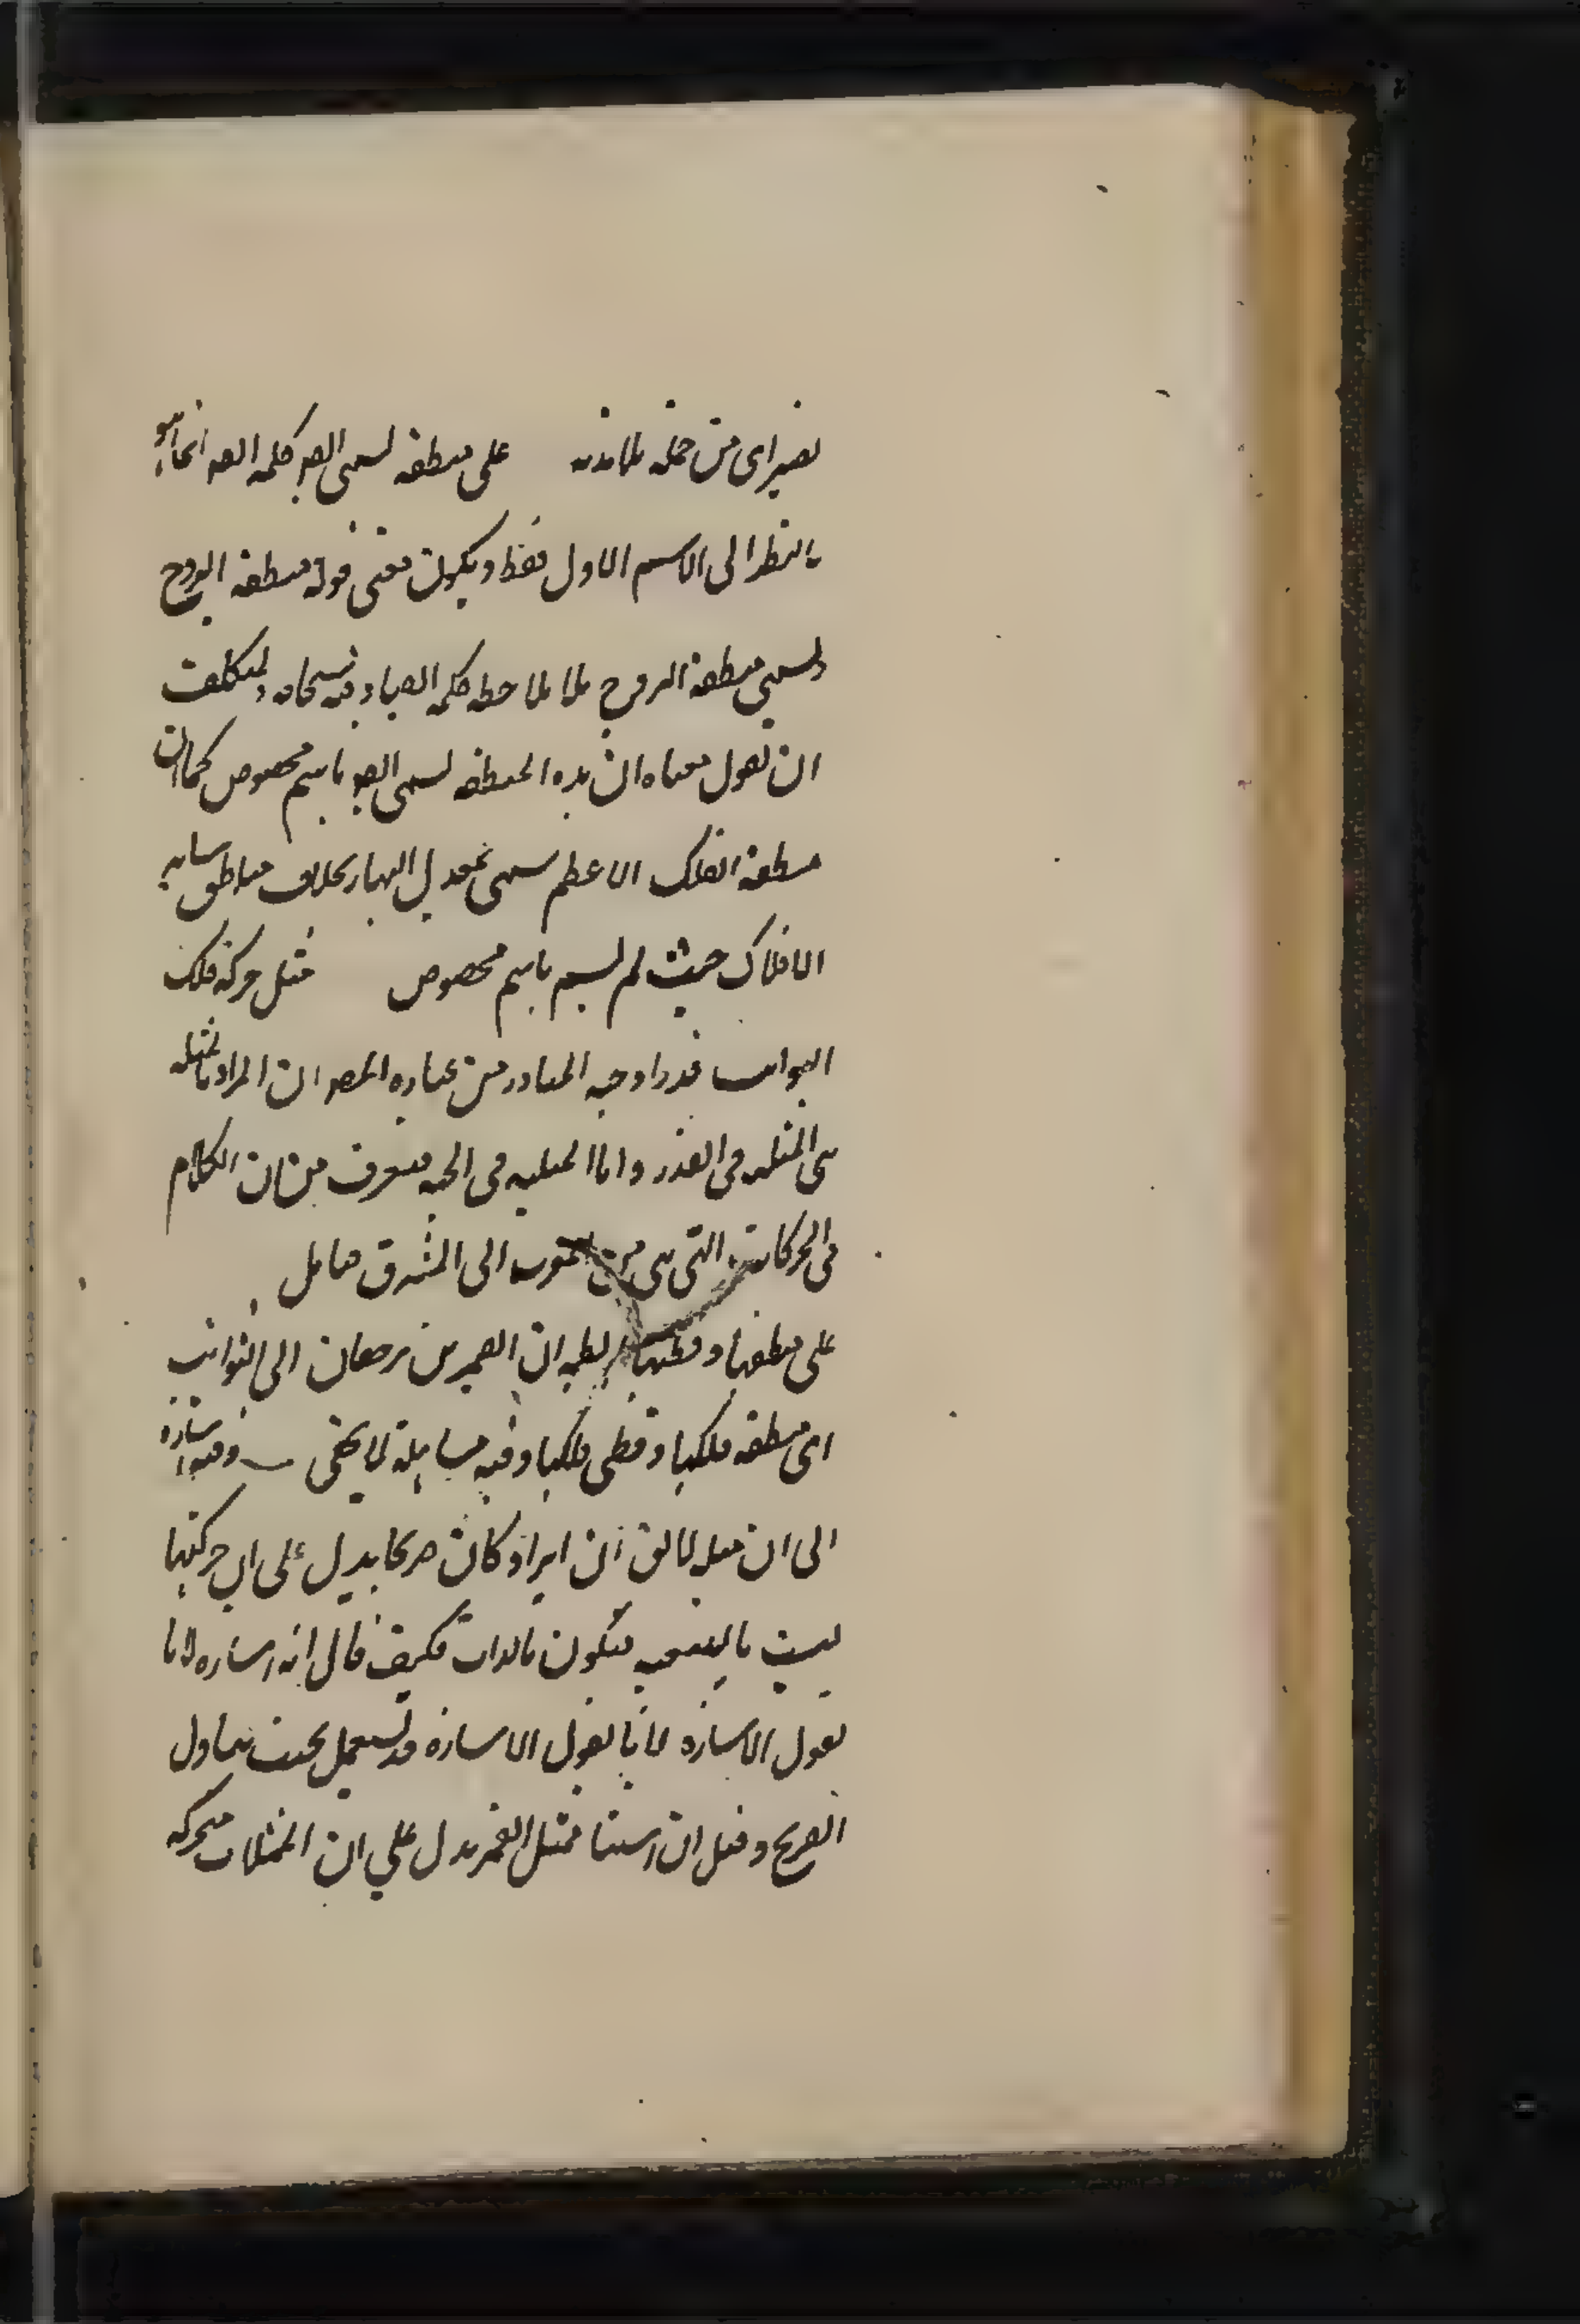 نصير اى من جملة تلامذته على منطقة تسمى ايضا كلمة ايضا انما هو
بالنظر الى الاسم الاول فقط ويكون معنى قوله منطقة البروج
وتسمى منطقة البروج بلا ملاحظة كلمة ايضا وفيه ويتكلف
ان نقول معناه ان هذه المنطقة تسمى ايضا باسم مخصوص كما ان
منطقة الفلك الاعظم تسمى بمعدل النهار بخلاف مناطق ساير
الافلاك حيث لم تسم باسم مخصوص مثل حركة فلك
الثوابت قدرا وجهة المتبادر من عبارة المصـ ان المراد بالمثلية
هى المثلية فى القدر واما المثلية فى الجهة فتعرف من ان الكلام
فى الحركات التى هى من المغرب الى المشرق تامل
على منطقتها وقطبيها الظاهر ان الضميرين يرجعان الى الثوابت
اى منطقة فلكها وقطبى فلكها وفيه مساهلة لا يخفى وفيه اشارة
الى ان قيل لا يقال ان ايراد كان صريحا يدل على ان حركتها
ليست بالتبعية فتكون بالذات فكيف قال انه اشارة لانا
نقول الاشارة لانا نقول الاشارة قد تستعمل بحيث يتناول
الصريح وقيل ان استثنا ممثل القمر يدل على ان الممثلات متحركة